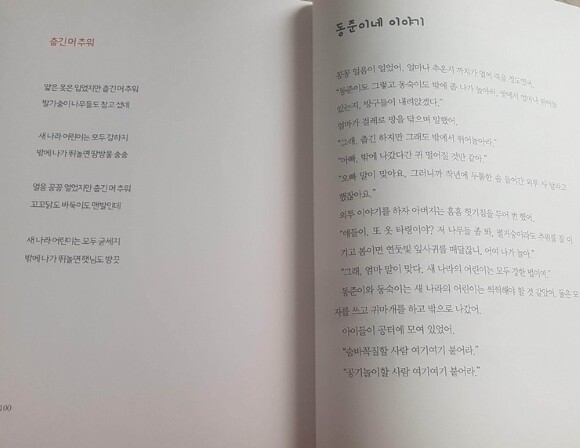 춥긴 머 추워
얇은 옷은 입었지만 춥긴 머 추워
발가숭이 나무들도 참고 섰네
새 나라 어린이는 모두 강하지
밖에 나가 뛰놀면 땀방울 송송
얼음 꽁꽁 얼었지만 춥긴 머 추워
꼬꼬닭도 바둑이도 맨발인데
새 나라 어린이는 모두 굳세지
밖에 나가 뛰놀면 햇님도 방긋
100
동준이네 이야기
꽁꽁 얼음이 얼었어. 얼마나 추운지 까치가 얼어 죽을 정도였어.
"동준이도 그렇고 동숙이도 밖에 좀 나가 놀아라. 방에서 얼마나 뛰어놀
았는지, 방구들이 내려앉겠다."
엄마가 걸레로 방을 닦으며 말했어.
"그래, 춥긴 하지만 그래도 밖에서 뛰어놀아라."
"아빠, 밖에 나갔다간 귀 떨어질 것만 같아."
"오빠 말이 맞아요. 그러니까 작년에 두툼한 솜 들어간 외투 사 달라고
했잖아요."
외투 이야기를 하자 아버지는 흠흠 헛기침을 두어 번 했어.
"얘들이, 또 옷 타령이야? 저 나무들 좀 봐. 벌거숭이라도 추위를 잘 이
기고 봄이면 연둣빛 잎사귀를 매달잖니. 어여 나가 놀아."
"그래, 엄마 말이 맞다. 새 나라의 어린이는 모두 강한 법이여."
동준이와 동숙이는 새 나라의 어린이는 씩씩해야 할 것 같았어. 둘은 모
자를 쓰고 귀마개를 하고 밖으로 나갔어.
아이들이 공터에 모여 있었어.
"숨바꼭질할 사람 여기여기 붙어라."
"공기놀이할 사람 여기여기 붙어라."